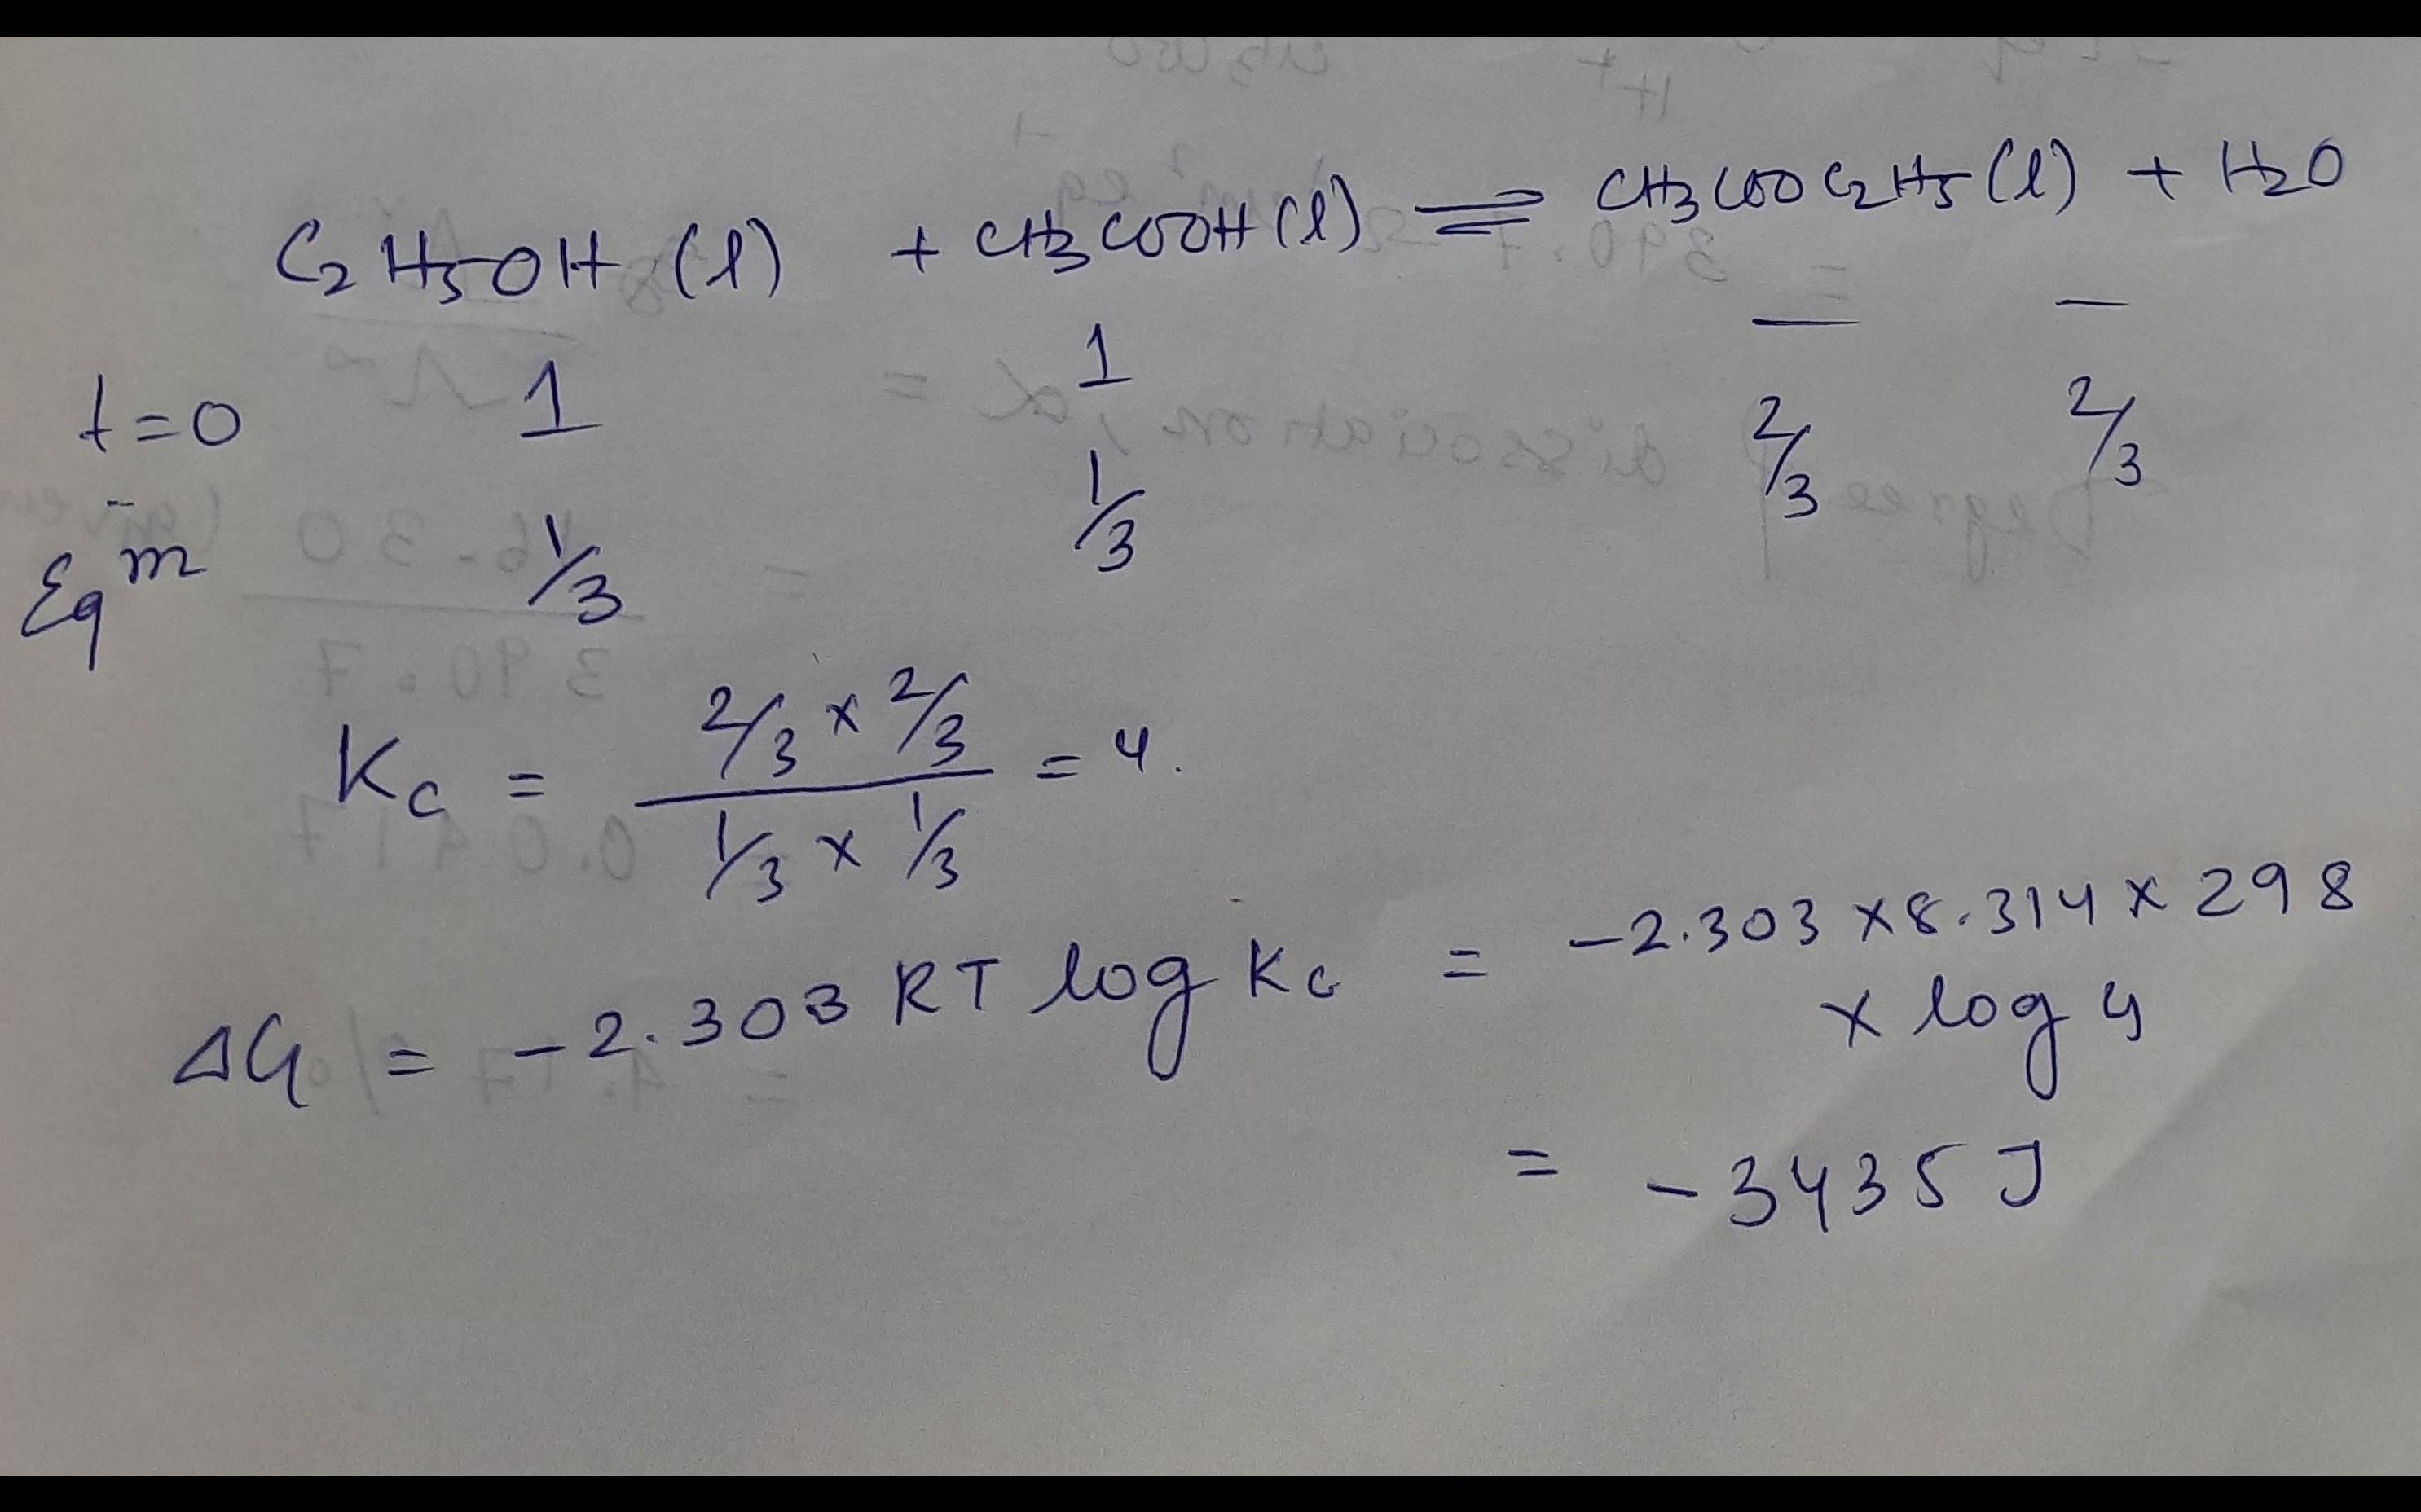 C₂H₅OH (l) + CH₃COOH (l) ⇌ CH₃COOC₂H₅ (l) + H₂O
t=0 1 1 — —
Eqᵐ 1/3 1/3 2/3 2/3
Kc = (2/3 × 2/3) / (1/3 × 1/3) = 4.
ΔG = -2.303 RT log Kc = -2.303 × 8.314 × 298
× log 4
= -3435 J